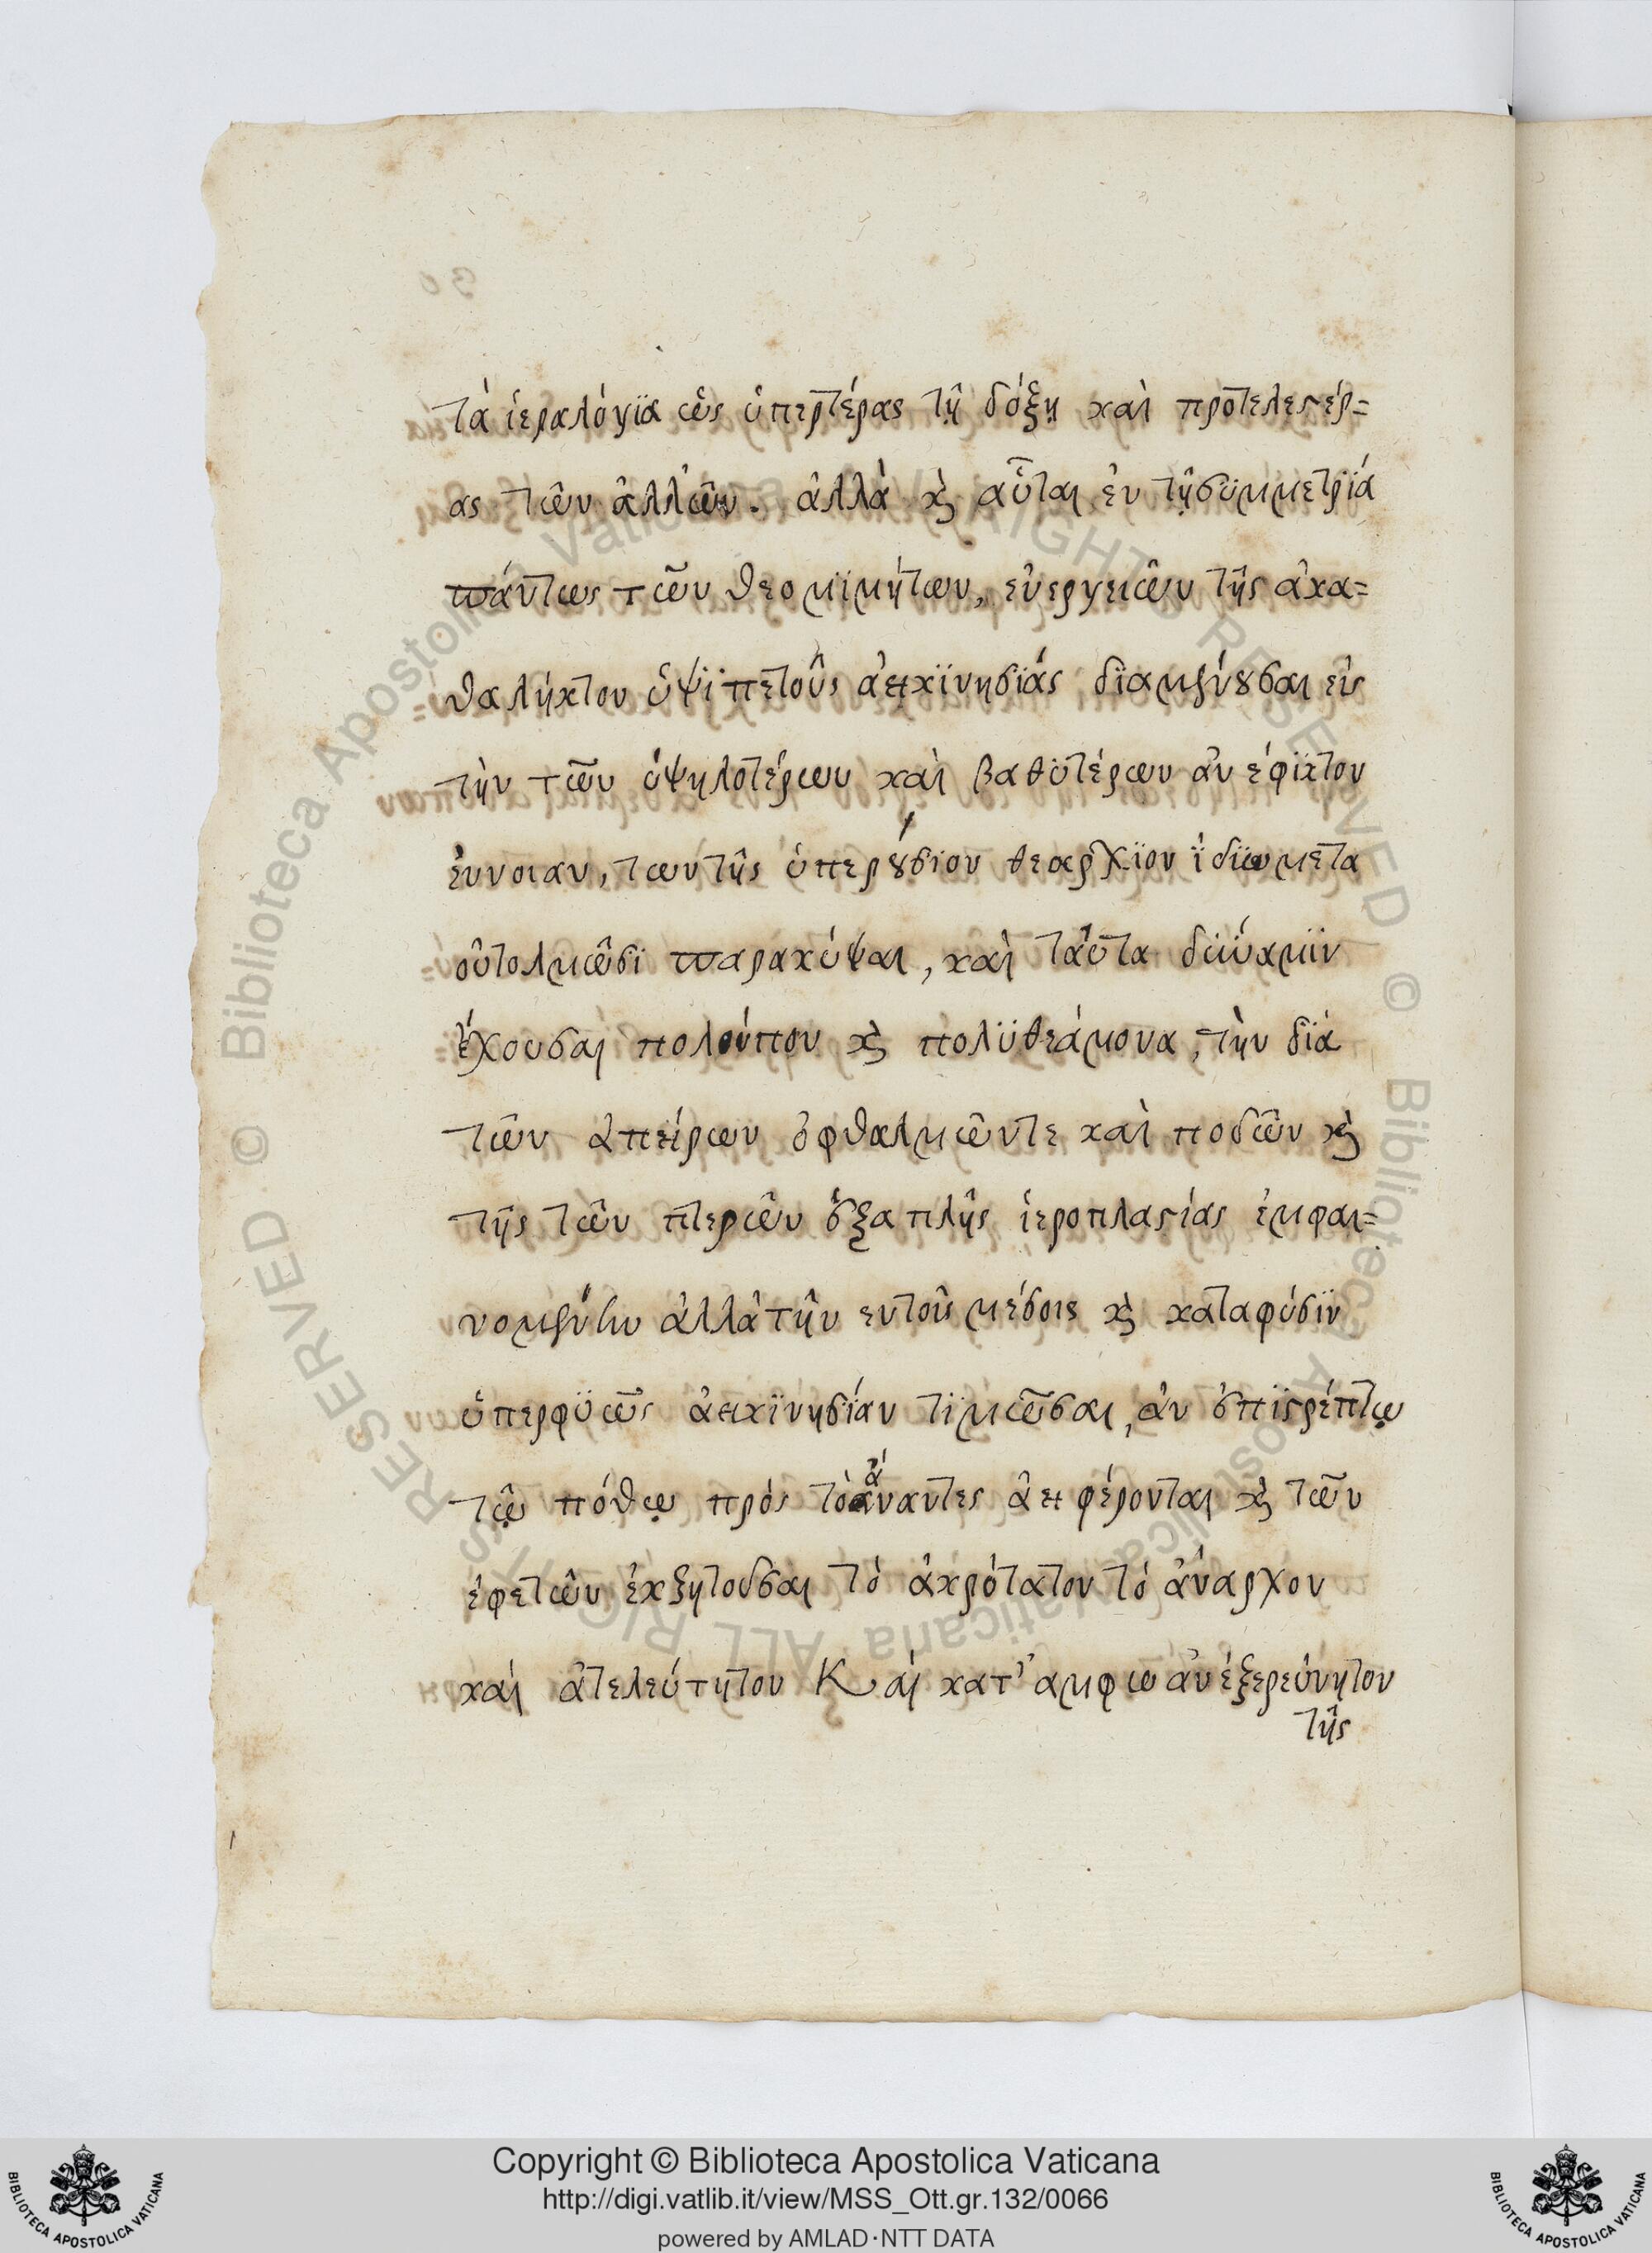 τὰ ἱεραλόγϊα ὡς ὑπερτέρας τῇ δόξῃ καὶ προτελεστέρ=
ας τῶν ἀλλῶν. ἀλλὰ ϗ αὗται ἐν τῇ σϋμμετρϊά
πάντως τῶν θεομϊμήτων, ἐνεργειῶν τῆς ἀκα=
θαλήκτου ὑψϊπετοῦς ἀεικϊνησϊάς δϊαμένουσαι εἰς
τὴν τῶν ὑψηλοτέρων καὶ βαθϋτέρων ἀν έφϊκτον
ἔννοιαν, των τῆς ὑπερουσίου θεαρχϊου ϊδϊωμετα
οὐτολμῶσϊ παρακύψαι, καὶ ταῦτα δύναμϊν
ἔχουσαι πολούπου ϗ πολϋθεάμονα, τὴν δϊὰ
τῶν ἀπείρων ὀφθαλμῶντε καὶ ποδῶν ϗ
τῆς τῶν πτερῶν ἑξαπλῆς ἱεροπλαστίας ἐμφαι=
νομένην ἀλλὰ τὴν εντοῖς μέσοις ϗ καταφύσϊν
ὑπερφϋῶς ἀεικϊνησίαν τϊμῶσαι, ἀν ἐπϊστρέπτῳ
τῷ πόθῳ πρὸς τὸ ἄναντες ἀεὶ φέρονται ϗ τῶν
ἐφετῶν ἐκζητοῦσαι τὸ ἀκρότατον τὸ ἄναρχον
καὶ ἀτελεύτητον Καὶ κατ' αμφω ἀνέξερεύνητον
τῆς
Copyright © Biblioteca Apostolica Vaticana
http://digi.vatlib.it/view/MSS_Ott.gr.132/0066
powered by AMLAD·NTT DATA
BIBLIOTECA APOSTOLICA VATICANA
BIBLIOTECA APOSTOLICA VATICANA
© Biblioteca Apostolica Vaticana ALL RIGHTS RESERVED © Biblioteca Apostolica Vaticana ALL RIGHTS RESERVED